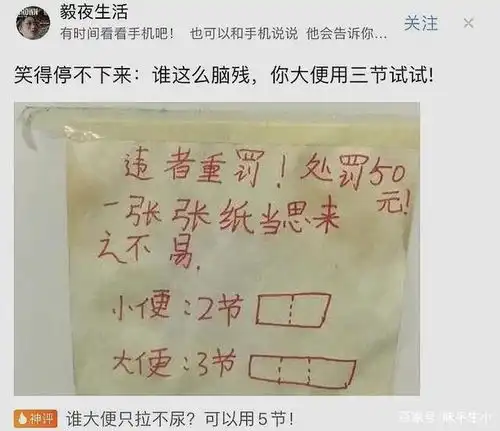 毅夜生活
有时间看看手机吧！ 也可以和手机说说 他会告诉你...
关注
笑得停不下来：谁这么脑残，你大便用三节试试!
违者重罚！处罚50
元!
一张张纸当思来
之不易.
小便：2节
大便：3节
神评 谁大便只拉不尿？可以用5节！